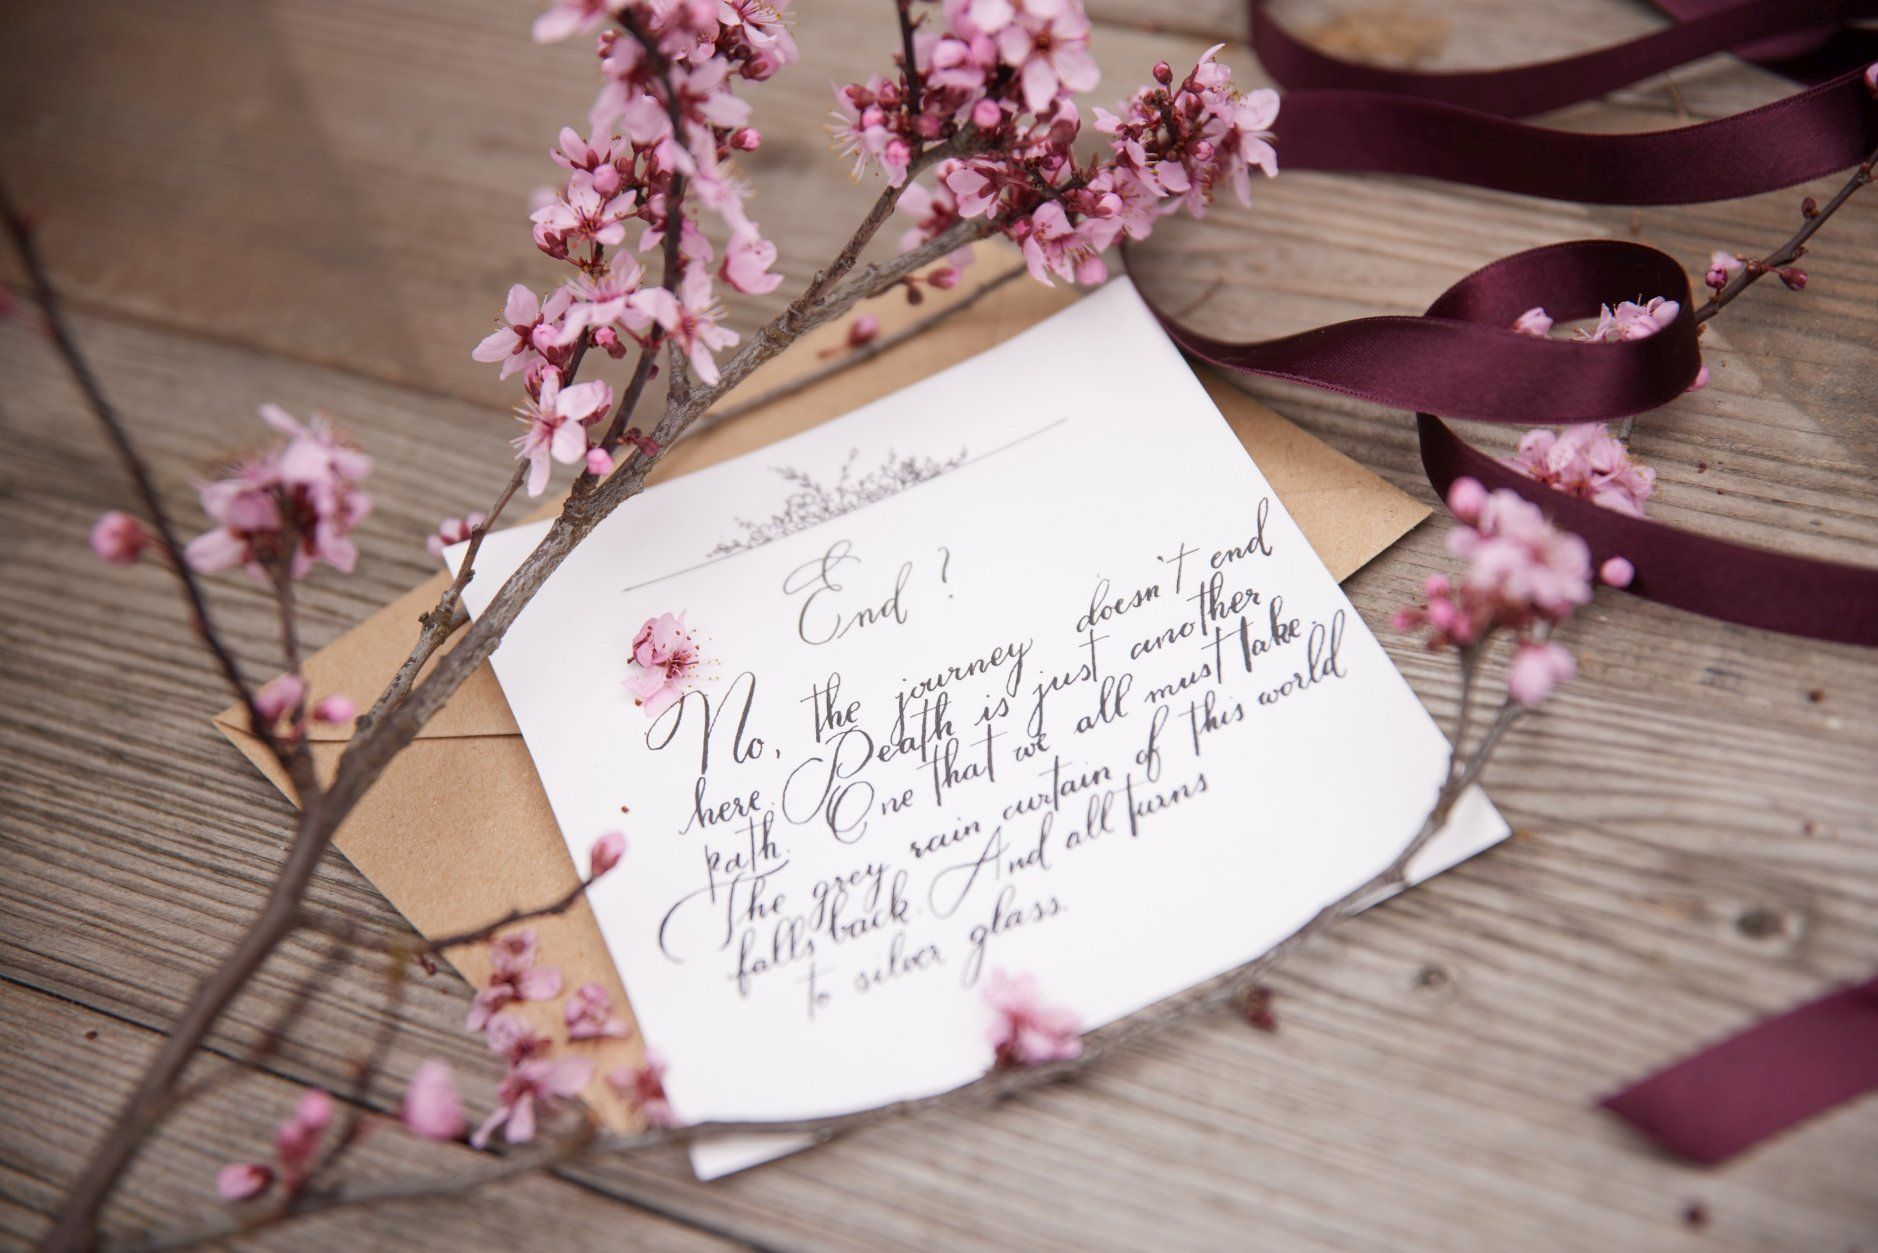 End?
No, the journey doesn't end
here. Death is just another
path. One that we all must take.
The grey rain curtain of this world
falls back. And all turns
to silver glass.